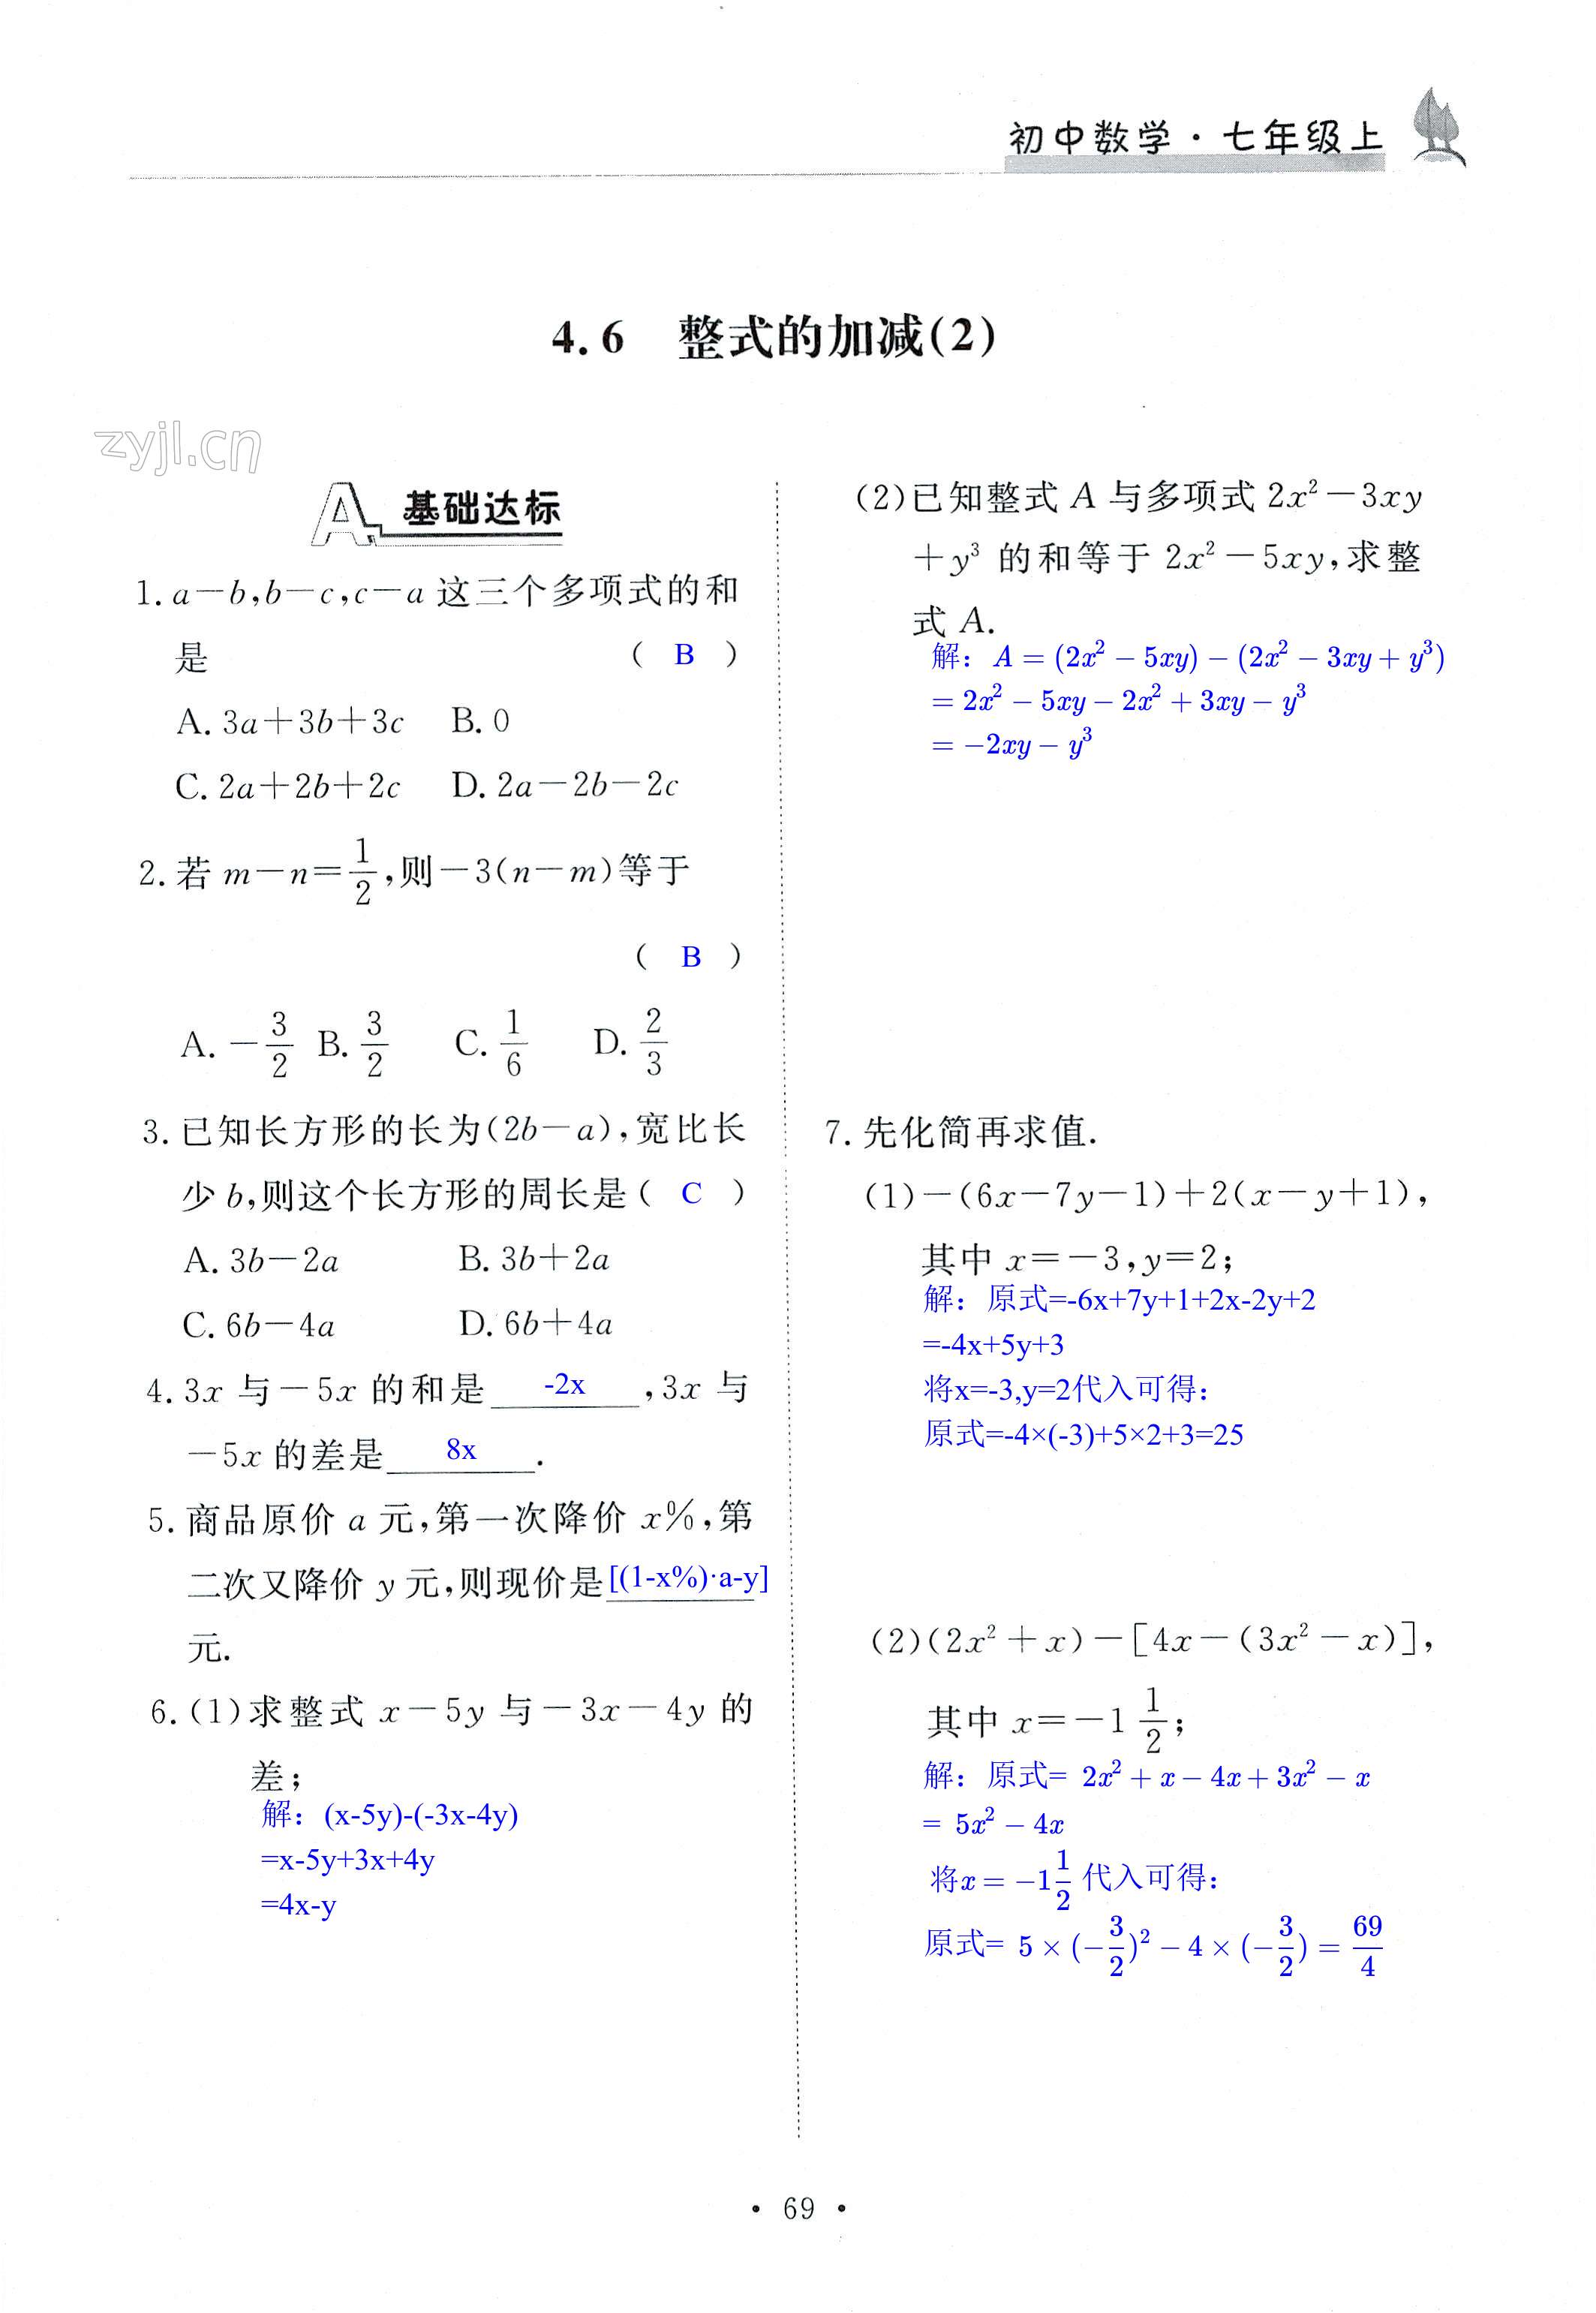 初中数学·七年级上
4.6 整式的加减(2)
zyjl.cn
A 基础达标
1. a－b,b－c,c－a 这三个多项式的和
是 ( B )
A. 3a＋3b＋3c B. 0
C. 2a＋2b＋2c D. 2a－2b－2c
2. 若 m－n＝1/2,则－3(n－m)等于
( B )
A. －3/2 B. 3/2 C. 1/6 D. 2/3
3. 已知长方形的长为(2b－a),宽比长
少 b,则这个长方形的周长是( C )
A. 3b－2a B. 3b＋2a
C. 6b－4a D. 6b＋4a
4. 3x 与－5x 的和是 -2x ,3x 与
－5x 的差是 8x .
5. 商品原价 a 元,第一次降价 x%,第
二次又降价 y 元,则现价是[(1-x%)·a-y]
元.
6. (1)求整式 x－5y 与－3x－4y 的
差;
解：(x-5y)-(-3x-4y)
=x-5y+3x+4y
=4x-y
(2)已知整式 A 与多项式 2x²－3xy
＋y³ 的和等于 2x²－5xy,求整
式 A.
解：A = (2x² − 5xy) − (2x² − 3xy + y³)
= 2x² − 5xy − 2x² + 3xy − y³
= −2xy − y³
7. 先化简再求值.
(1)－(6x－7y－1)＋2(x－y＋1),
其中 x＝－3,y＝2;
解：原式=-6x+7y+1+2x-2y+2
=-4x+5y+3
将x=-3,y=2代入可得：
原式=-4×(-3)+5×2+3=25
(2)(2x²＋x)－[4x－(3x²－x)],
其中 x＝－1 1/2;
解：原式= 2x² + x − 4x + 3x² − x
= 5x² − 4x
将x = −1 1/2 代入可得：
原式= 5 × (−3/2)² − 4 × (−3/2) = 69/4
• 69 •